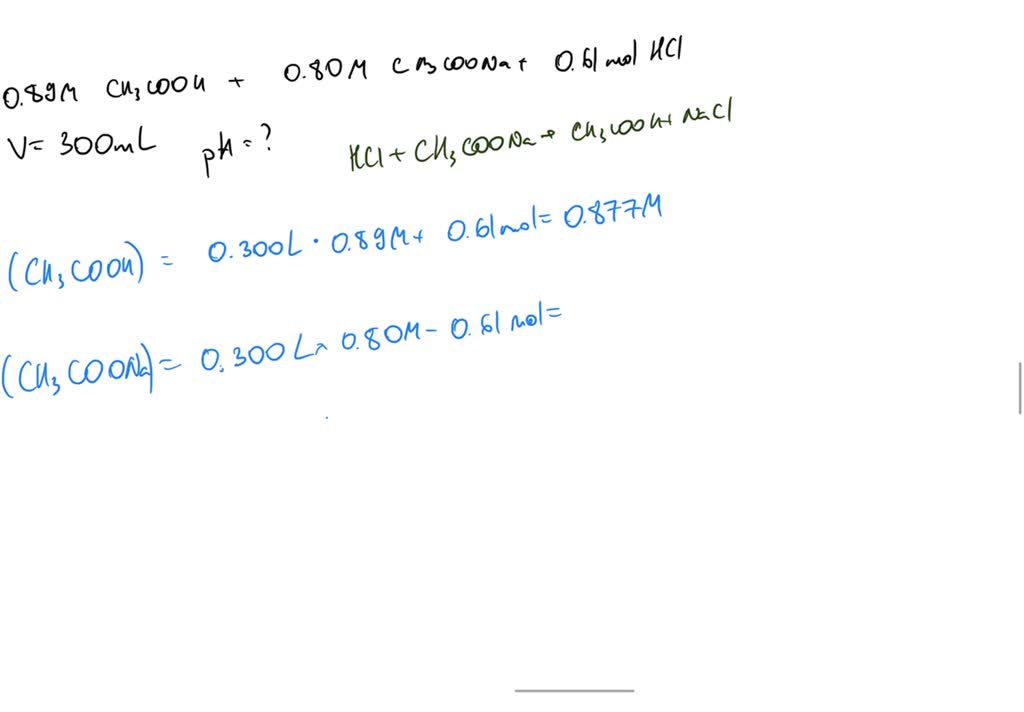 0.89M CH3COOH + 0.80M CH3COONa + 0.61 mol HCl
V= 300mL pH = ?
HCl + CH3COONa → CH3COOH + NaCl
(CH3COOH) = 0.300L · 0.89M + 0.61 mol = 0.877M
(CH3COONa) = 0.300L × 0.80M - 0.61 mol =